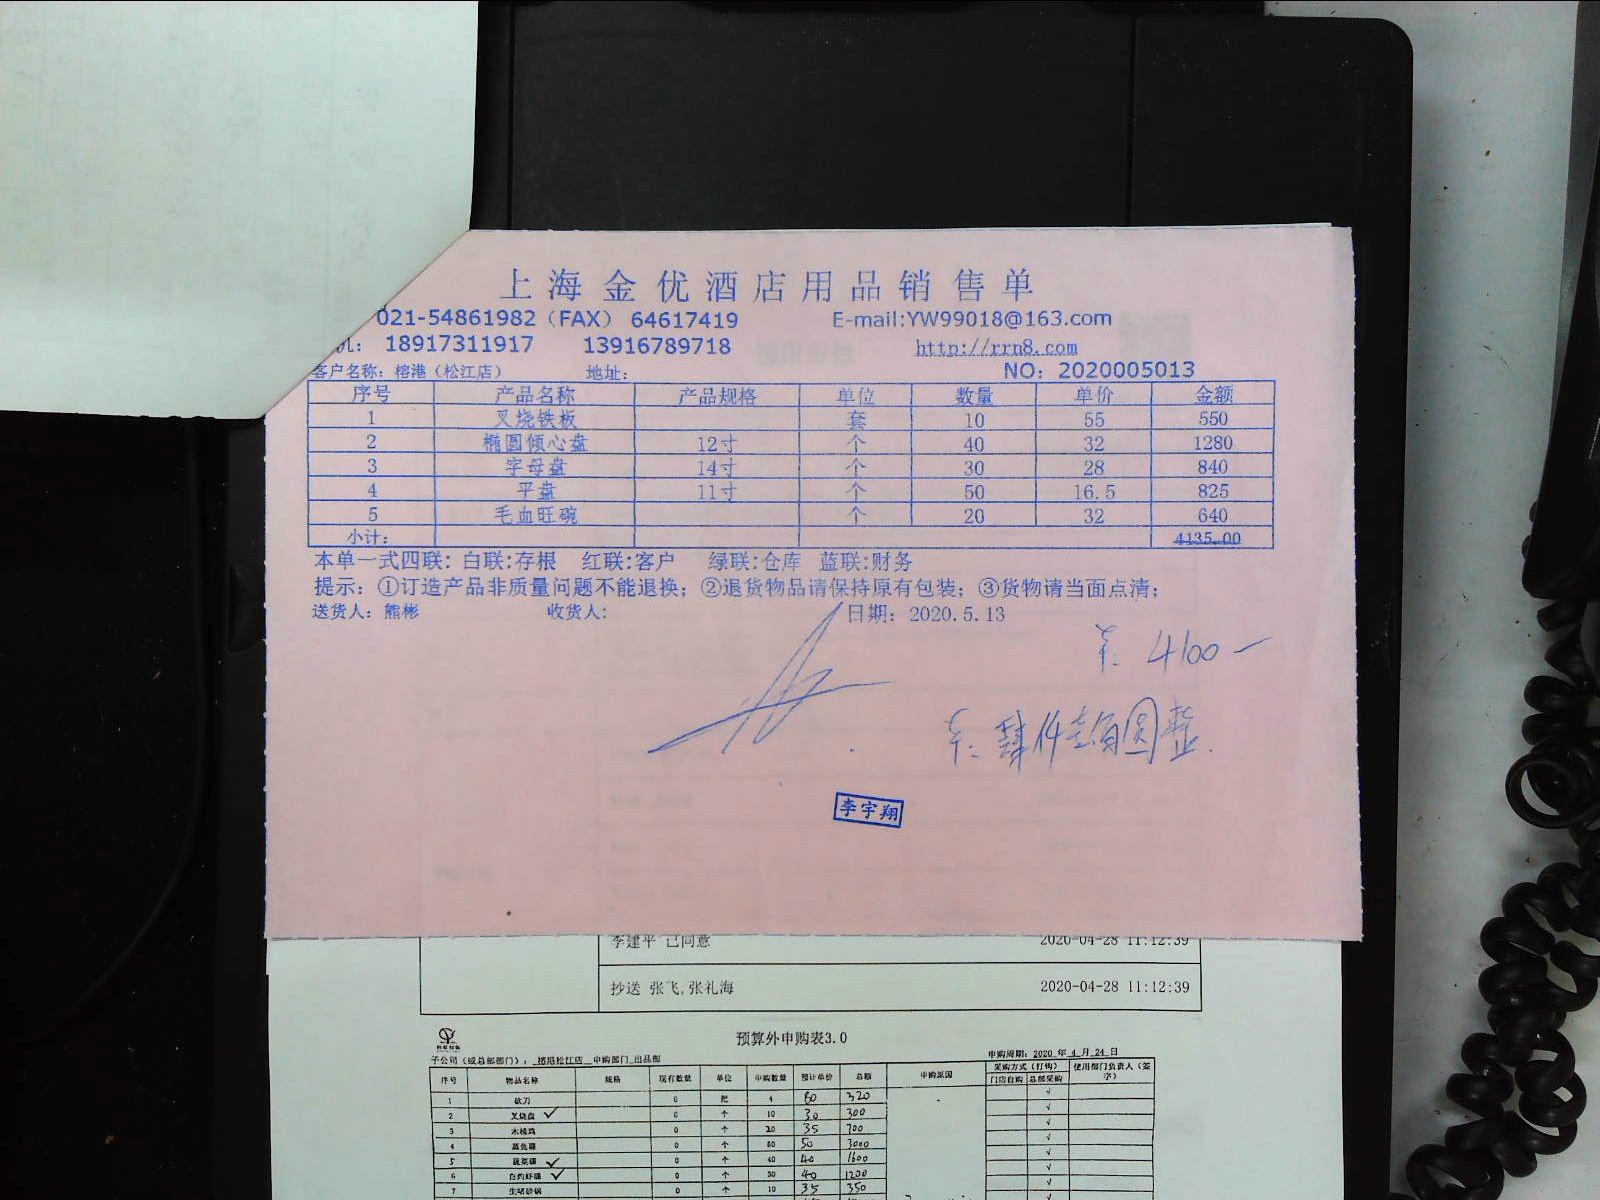 上海金优酒店用品销售单
021-54861982（FAX） 64617419 E-mail:YW99018@163.com
机： 18917311917 13916789718 http://rrn8.com
客户名称：榕港（松江店） 地址： NO：2020005013
序号 产品名称 产品规格 单位 数量 单价 金额
1 叉烧铁板 套 10 55 550
2 椭圆倾心盘 12寸 个 40 32 1280
3 字母盘 14寸 个 30 28 840
4 平盘 11寸 个 50 16.5 825
5 毛血旺碗 个 20 32 640
小计： 4135.00
本单一式四联：白联:存根 红联:客户 绿联:仓库 蓝联:财务
提示：①订造产品非质量问题不能退换；②退货物品请保持原有包装；③货物请当面点清；
送货人：熊彬 收货人： 日期：2020.5.13
¥: 4100
¥: 肆仟壹佰圆整.
李宇翔
李建平 已同意 2020-04-28 11:12:39
抄送 张飞,张礼海 2020-04-28 11:12:39
预算外申购表3.0
子公司（或总部部门）：榕港松江店 申购部门 出品部 申购周期：2020 年 4 月 24 日
序号 物品名称 规格 现有数量 单位 申购数量 预计单价 总额 申购原因 采购方式（打钩） 使用部门负责人（签字）
门店自购 总部采购
1 砍刀 0 把 4 80 320 √
2 叉烧盘 ✓ 0 个 10 30 300 √
3 0 个 20 35 700 √
4 蒸鱼碟 0 个 60 50 3000 √
5 蔬菜碟 ✓ 0 个 40 40 1600 √
6 白灼虾碟 ✓ 0 个 30 40 1200 √
7 生啫砂锅 0 个 10 35 350 √